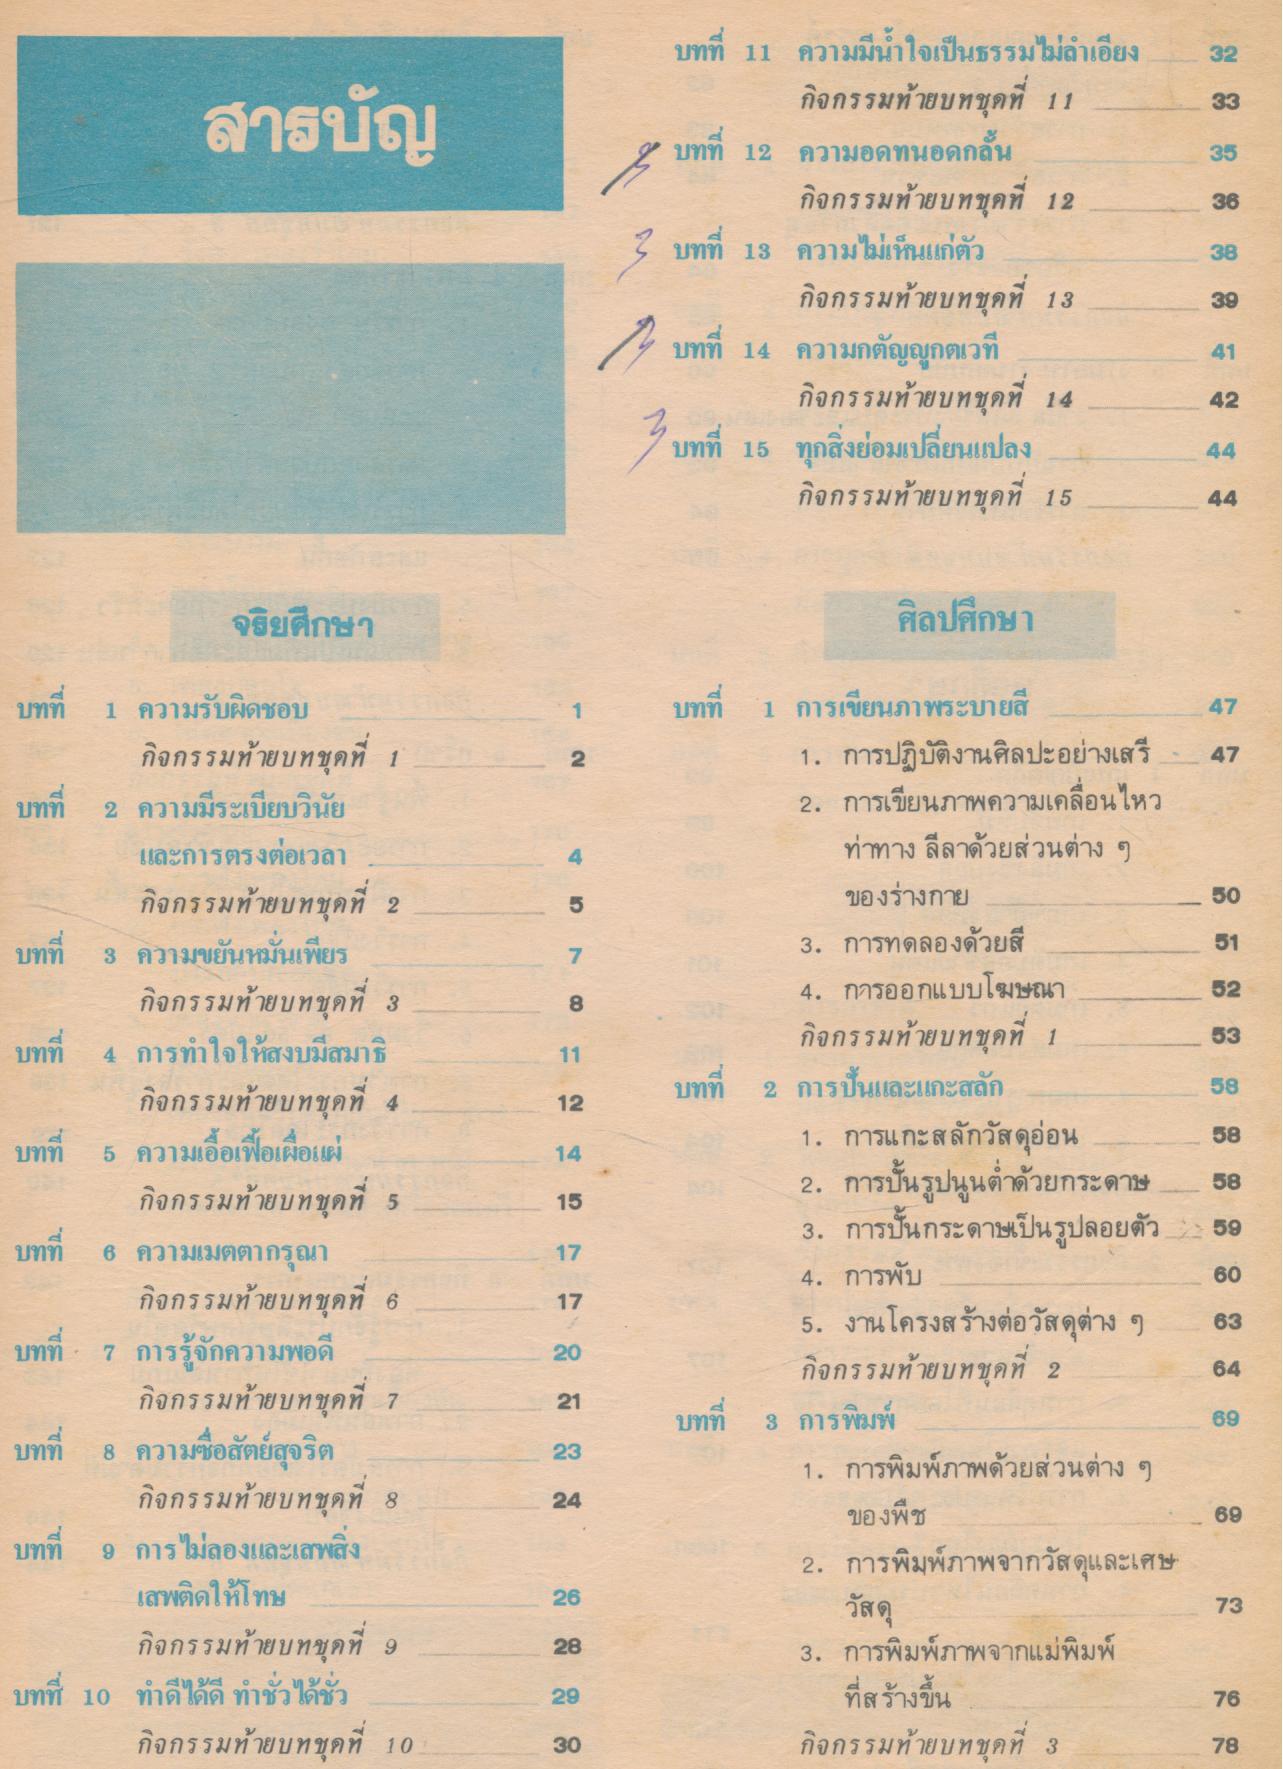 สารบัญ
จริยศึกษา
บทที่ 1 ความรับผิดชอบ 1
กิจกรรมท้ายบทชุดที่ 1 2
บทที่ 2 ความมีระเบียบวินัย
และการตรงต่อเวลา 4
กิจกรรมท้ายบทชุดที่ 2 5
บทที่ 3 ความขยันหมั่นเพียร 7
กิจกรรมท้ายบทชุดที่ 3 8
บทที่ 4 การทำใจให้สงบมีสมาธิ 11
กิจกรรมท้ายบทชุดที่ 4 12
บทที่ 5 ความเอื้อเฟื้อเผื่อแผ่ 14
กิจกรรมท้ายบทชุดที่ 5 15
บทที่ 6 ความเมตตากรุณา 17
กิจกรรมท้ายบทชุดที่ 6 17
บทที่ 7 การรู้จักความพอดี 20
กิจกรรมท้ายบทชุดที่ 7 21
บทที่ 8 ความซื่อสัตย์สุจริต 23
กิจกรรมท้ายบทชุดที่ 8 24
บทที่ 9 การไม่ลองและเสพสิ่ง
เสพติดให้โทษ 26
กิจกรรมท้ายบทชุดที่ 9 28
บทที่ 10 ทำดีได้ดี ทำชั่วได้ชั่ว 29
กิจกรรมท้ายบทชุดที่ 10 30
บทที่ 11 ความมีน้ำใจเป็นธรรมไม่ลำเอียง 32
กิจกรรมท้ายบทชุดที่ 11 33
บทที่ 12 ความอดทนอดกลั้น 35
กิจกรรมท้ายบทชุดที่ 12 36
บทที่ 13 ความไม่เห็นแก่ตัว 38
กิจกรรมท้ายบทชุดที่ 13 39
บทที่ 14 ความกตัญญูกตเวที 41
กิจกรรมท้ายบทชุดที่ 14 42
บทที่ 15 ทุกสิ่งย่อมเปลี่ยนแปลง 44
กิจกรรมท้ายบทชุดที่ 15 44
ศิลปศึกษา
บทที่ 1 การเขียนภาพระบายสี 47
1. การปฏิบัติงานศิลปะอย่างเสรี 47
2. การเขียนภาพความเคลื่อนไหว
ท่าทาง ลีลาด้วยส่วนต่าง ๆ
ของร่างกาย 50
3. การทดลองด้วยสี 51
4. การออกแบบโฆษณา 52
กิจกรรมท้ายบทชุดที่ 1 53
บทที่ 2 การปั้นและแกะสลัก 58
1. การแกะสลักวัสดุอ่อน 58
2. การปั้นรูปนูนต่ำด้วยกระดาษ 58
3. การปั้นกระดาษเป็นรูปลอยตัว 59
4. การพับ 60
5. งานโครงสร้างต่อวัสดุต่าง ๆ 63
กิจกรรมท้ายบทชุดที่ 2 64
บทที่ 3 การพิมพ์ 69
1. การพิมพ์ภาพด้วยส่วนต่าง ๆ
ของพืช 69
2. การพิมพ์ภาพจากวัสดุและเศษ
วัสดุ 73
3. การพิมพ์ภาพจากแม่พิมพ์
ที่สร้างขึ้น 76
กิจกรรมท้ายบทชุดที่ 3 78